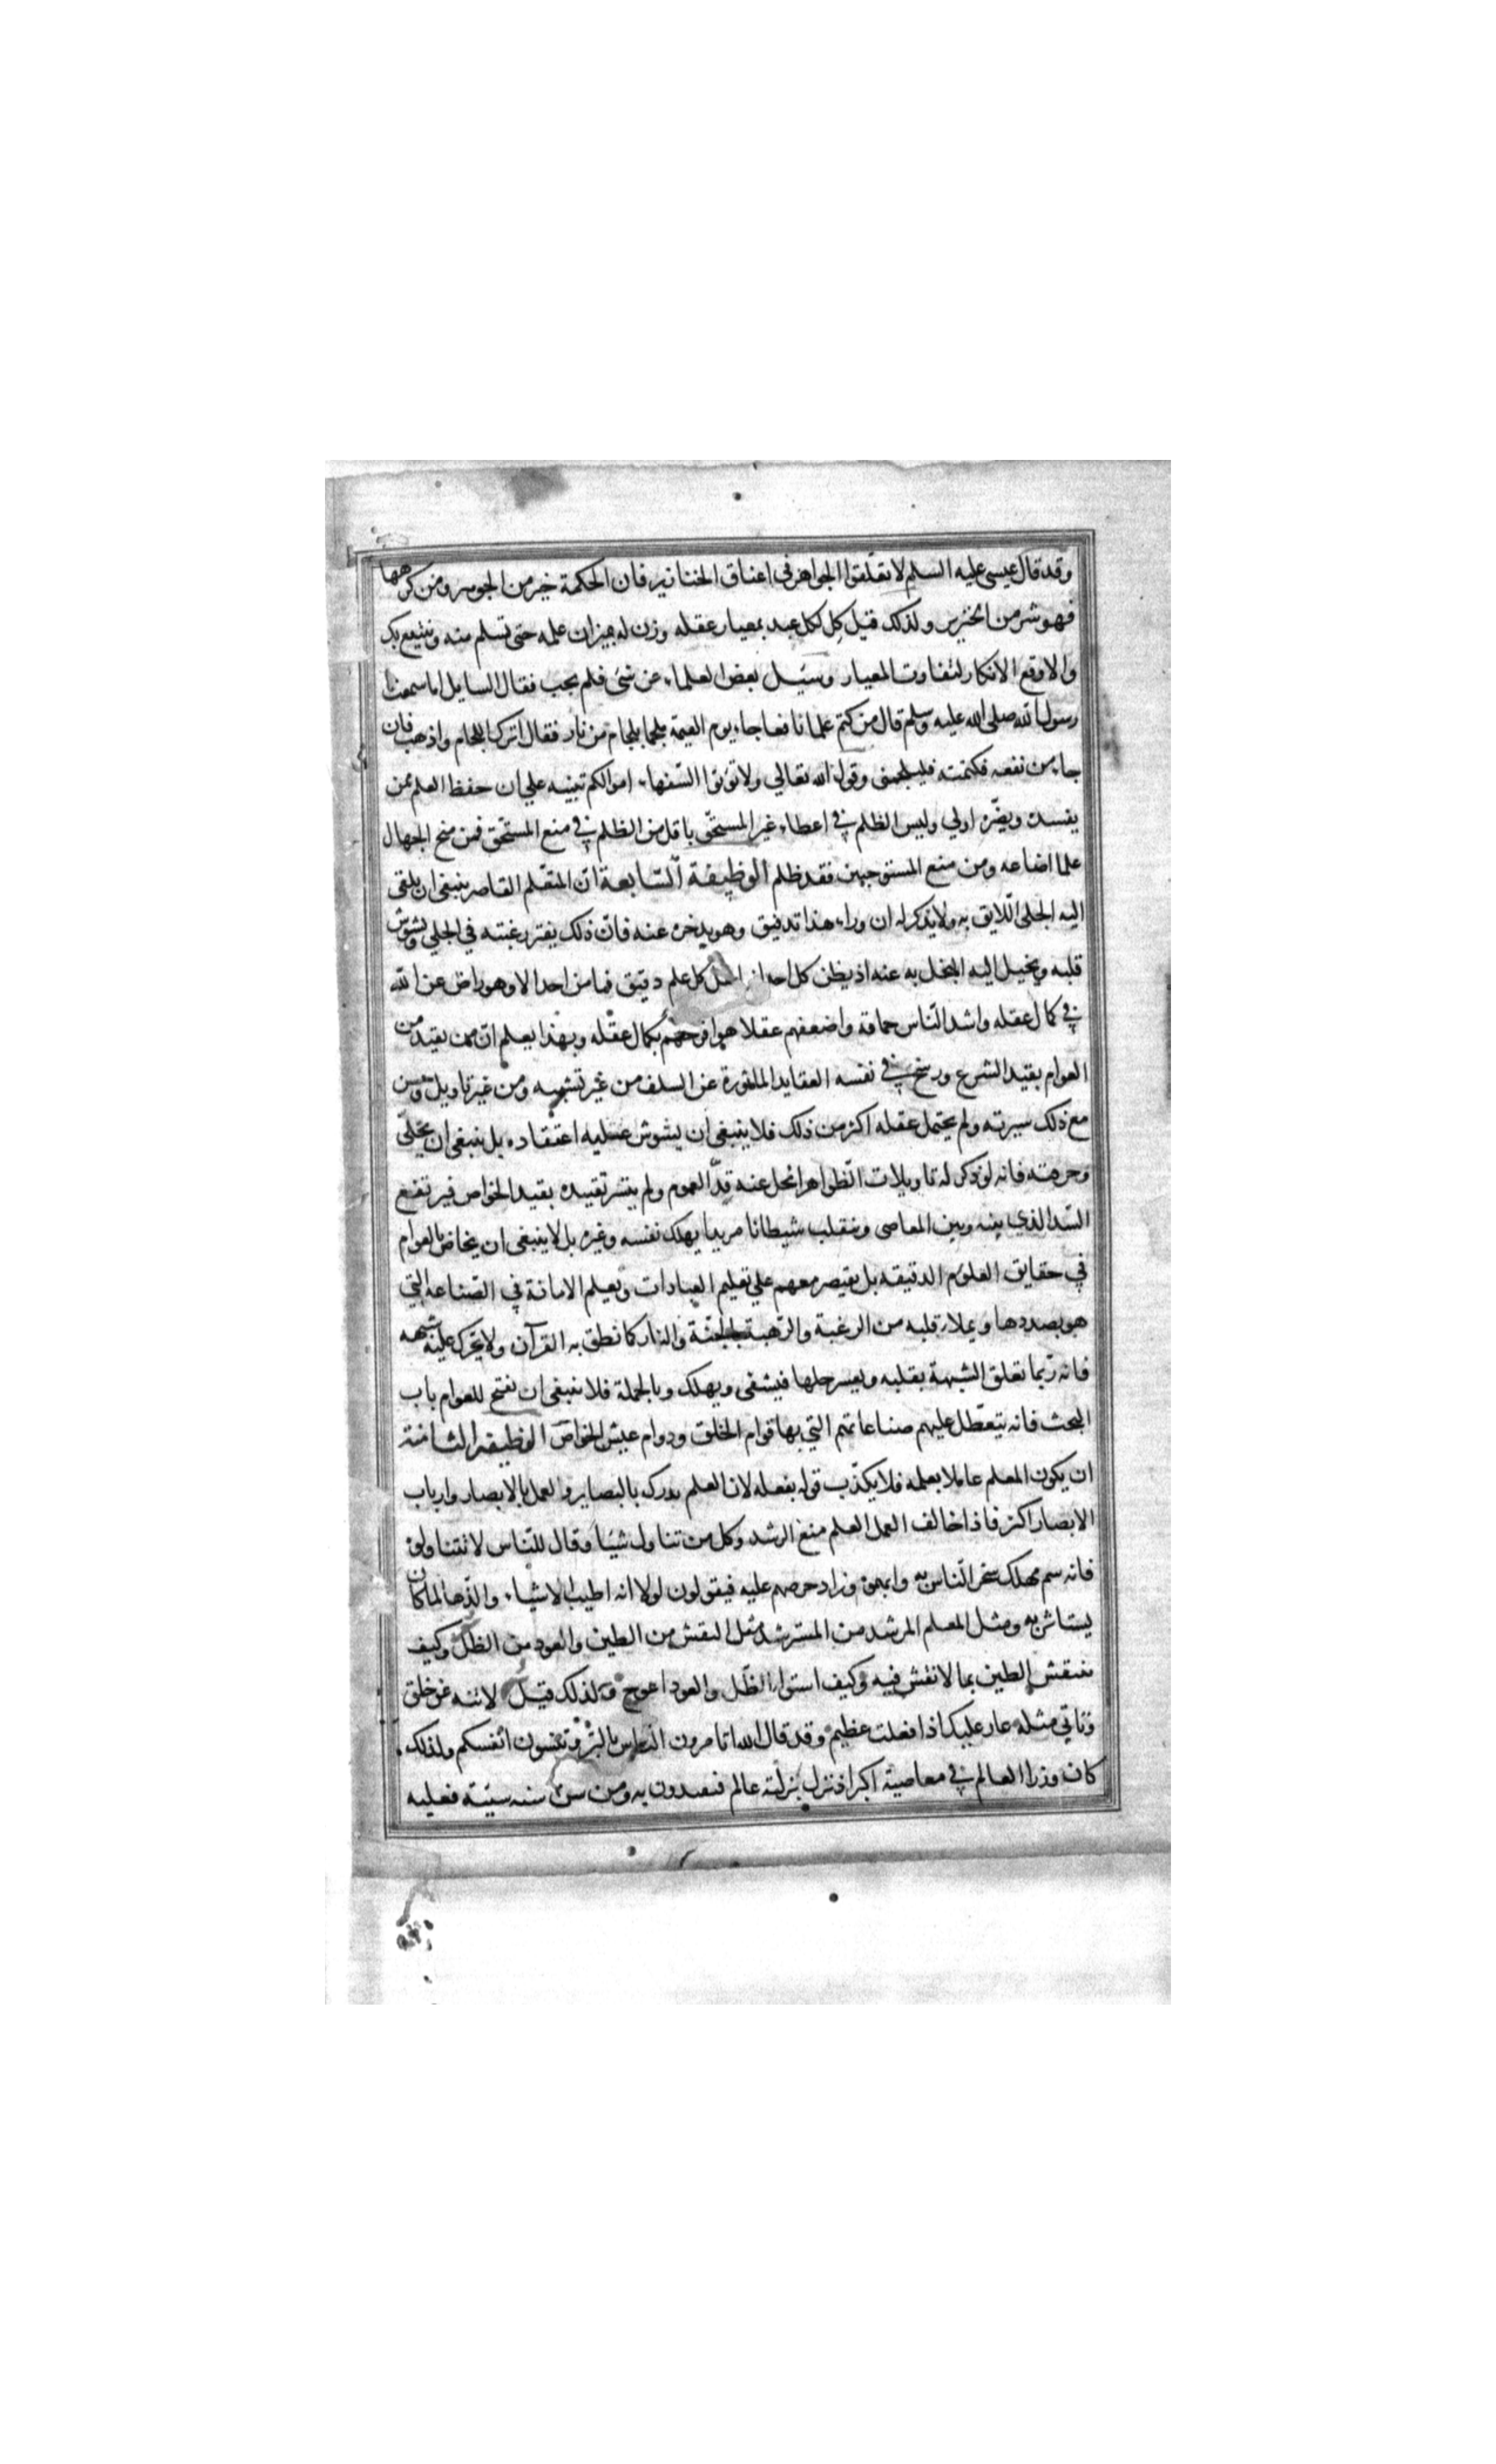 وقد قال عيسى عليه السلم لا تعلّقوا الجواهر في اعناق الخنازير فان الحكمة خير من الجوهر ومن كرهها
فهو شر من الخنزير ولذلك قيل كِل لكل عبد بمعيار عقله وزن له بميزان علمه حتى تسلم منه وينتفع بك
والا وقع الانكار لتفاوت المعيار وسئيل بعض العلماء عن شئ فلم يجب فقال السايل اما سمعت
رسول الله صلى الله عليه وسلم قال من كتم علما نافعا جاء يوم القيمة ملجما بلجام من نار فقال اترك اللجام واذهب فان
جاء من نفعه فكتمته فليلجمنى وقول الله تعالي ولا تؤتوا السّفهاء اموالكم تنبيه علي ان حفظ العلم ممن
يفسده ويضّره اولي وليس الظلم في اعطاء غير المستحّق باقل من الظلم في منع المستّحق فمن منح الجهال
علما اضاعه ومن منع المستوجبين فقد ظلم الوظيفة السّابعة انّ المتعّلم القاصر ينبغى ان يلقى
اليه الجلى الّلايق به ولا يذكر له ان وراء هذا تدقيق وهو يدخره عنه فانّ ذلك يفتر رغبته في الجلي ويشوّش
قلبه ويخيل اليه البخل به عنه اذ يظن كل احد انه اهل كل علم دقيق فما من احد الا وهو راض عن الله
في كمال عقله واشد النّاس حماقة واضعفهم عقلا هو افرحهم بكمال عقله وبهذا يعلم انّ من يقيد من
العوام بقيد الشرع ورسخ في نفسه العقايد الماثورة عن السلف من غير تشبيه ومن غير تاويل وحسن
مع ذلك سيرته ولم يحتمل عقله اكثر من ذلك فلا ينبغى ان يشوش عليه اعتقاده بل ينبغى ان يخلّى
وحرفته فانه لو ذكر له تاويلات الّظواهر انحل عنه قيد العموم ولم يتيسر تقييده بقيد الخواص فيرتفع
السّد الذي بينه وبين المعاصى وينقلب شيطانا مريدا يهلك نفسه وغيره بل لا ينبغى ان يخاض بالعوام
في حقايق العلوم الدقيقه بل يقتصر معهم علي تعليم العبادات وتعليم الامانة في الصّناعه التي
هو بصددها ويملاء قلبه من الرغبة والرّهبة بالجنّة والنار كما نطق به القرآن ولا يحرك عليه شبهه
فانه ربّما تعلق الشبهة بقلبه ويعسر حلها فيشقى ويهلك وبالجملة فلا ينبغى ان يفتح للعوام باب
البحث فانه يتعطّل عليهم صناعاتهم التي بها قوام الخلق ودوام عيش الخواصّ الوظيفة الثامنة
ان يكون المعلم عاملا بعلمه فلا يكذّب قوله بفعله لان العلم يدرك بالبصاير والعمل بالابصار وارباب
الابصار اكثر فاذا خالف العمل العلم منع الرشد وكل من تناول شيئا وقال للنّاس لا تتناولوه
فانه سم مهلك سخر النّاس به واتهموه وزاد حرصهم عليه فيقولون لولا انه اطيب الاشياء والذّها لما كان
يستاثر به ومثل المعلم المرشد من المسترشد مثل النقش من الطين والعود من الظلّ وكيف
ينتقش الطين بما لا نقش فيه وكيف استواء الظّل والعود اعوج ولذلك قيل لا تنه عن خلق
وتاتي مثله عار عليك اذا فعلت عظيم وقد قال الله اتامرون الناس بالبّر وتنسون انفسكم ولذلك
كان وزر العالم في معاصيه اكبر اذ تزل بزلته عالم فيقتدون به ومن سنّ سنه سيّئة فعليه